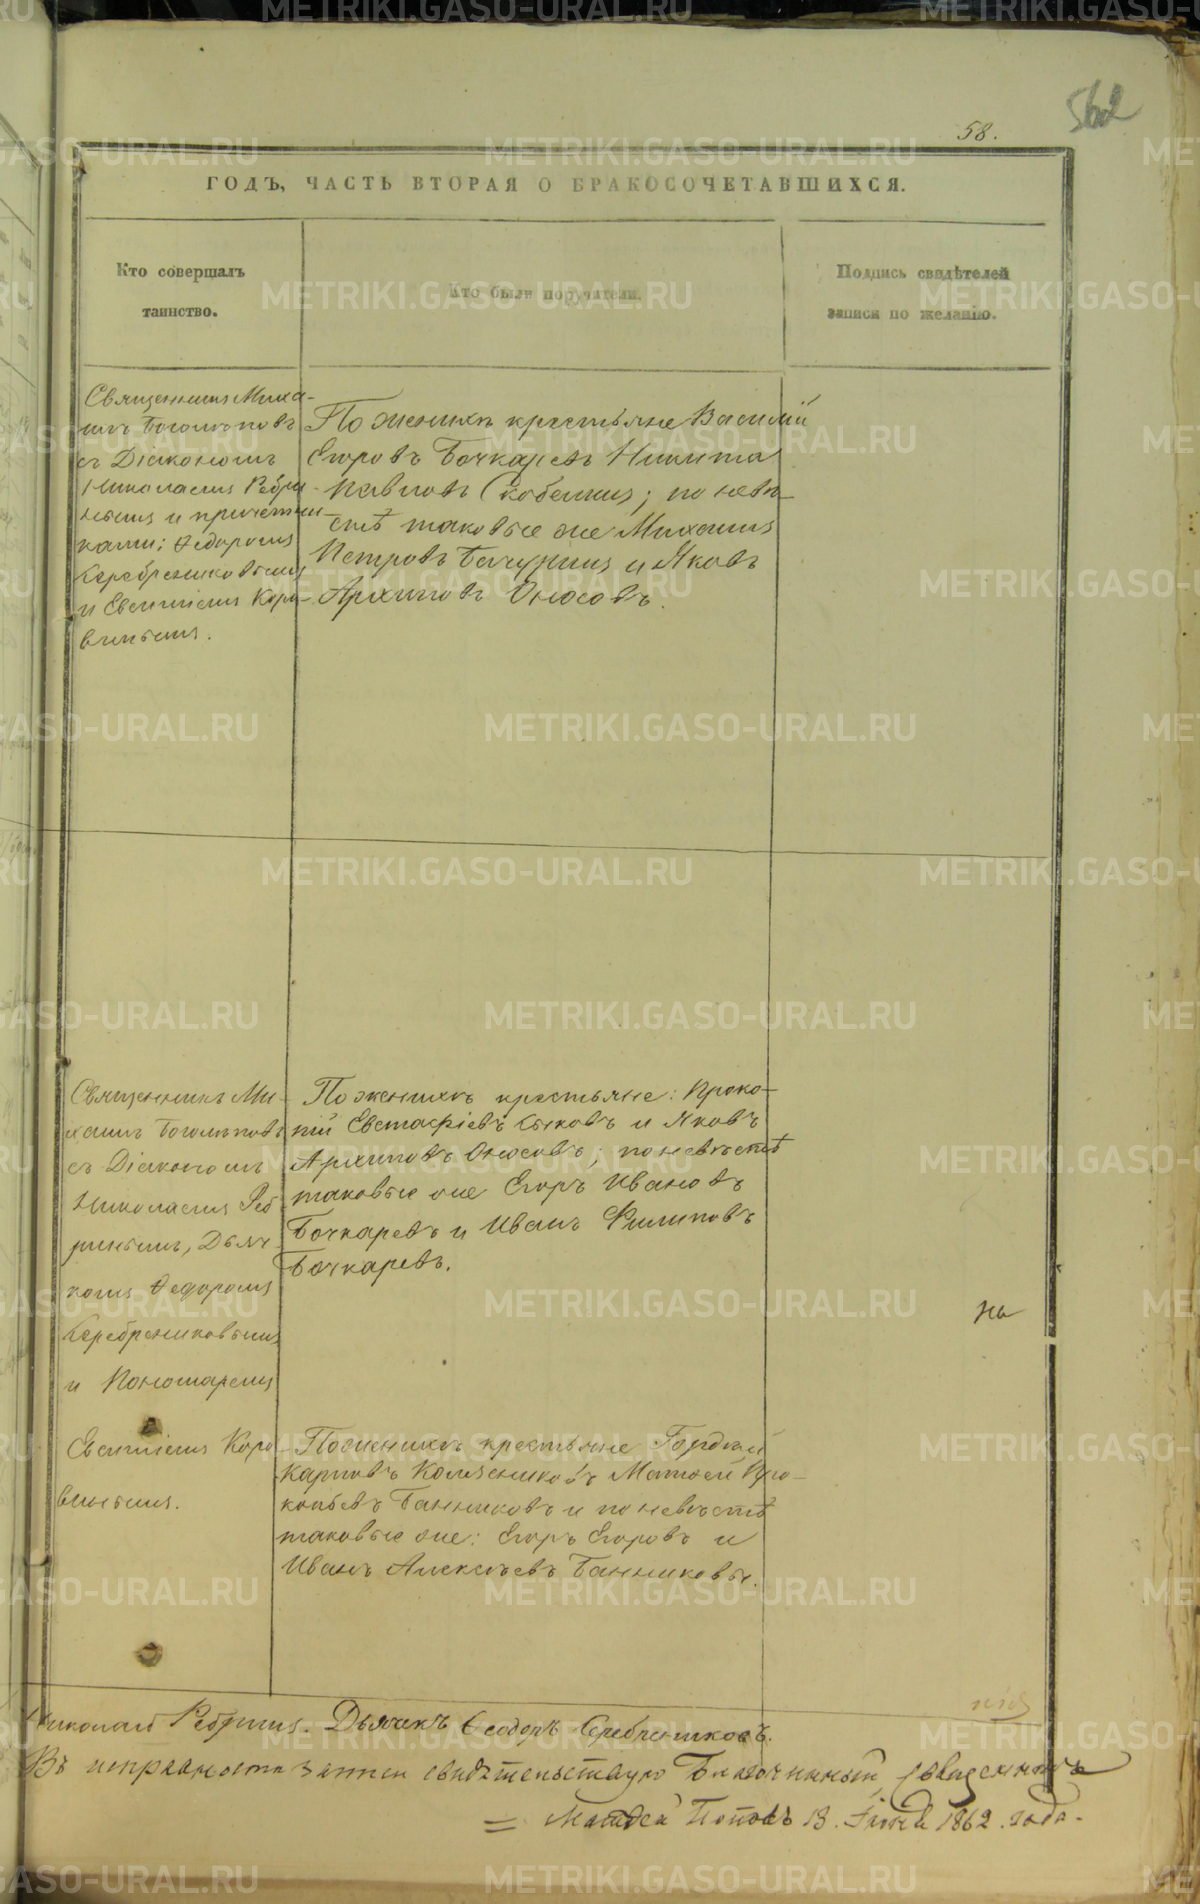 562
58.
ГОДЪ, ЧАСТЬ ВТОРАЯ О БРАКОСОЧЕТАВШИХСЯ.
Кто совершалъ
таинство.
Кто были поручители.
Подпись свидѣтелей
записи по желанію.
Священникъ Миха-
илъ Боголѣповъ
съ Діакономъ
Николаемъ Ребри-
нымъ и причетни-
ками: Ѳедоромъ
Серебрениковымъ
и Евѳиміемъ Коро-
винымъ.
По женихѣ крестьяне Василій
Егоровъ Бочкаревъ Никита
Павловъ Скобелинъ; по невѣ-
стѣ таковые же Михаилъ
Петровъ и Яковъ
Архиповъ Оносовъ.
Священникъ Ми-
хаилъ Боголѣповъ
съ Діакономъ
Николаемъ Реб-
ринымъ, Дьяч-
комъ Ѳедоромъ
Серебрениковымъ
и Пономаремъ
Евѳиміемъ Коро-
винымъ.
По женихѣ крестьяне: Проко-
пій Евстафіевъ Быковъ и Яковъ
Архиповъ Оносовъ; по невѣстѣ
таковые же Егоръ Ивановъ
Бочкаревъ и Иванъ Филиповъ
Бочкаревъ.
По женихѣ крестьяне Гордей
Карповъ Матвей Про-
копьевъ Банниковъ и по невѣстѣ
таковые же: Егоръ Егоровъ и
Иванъ Алексѣевъ Банниковы.
Николай Ребринъ. Дьячекъ Ѳеодоръ Серебрениковъ.
Въ исправности записи свидѣтельствую Благочинный, священникъ
= Матвей Поповъ 13. Іюня 1862 года.
METRIKI.GASO-URAL.RU